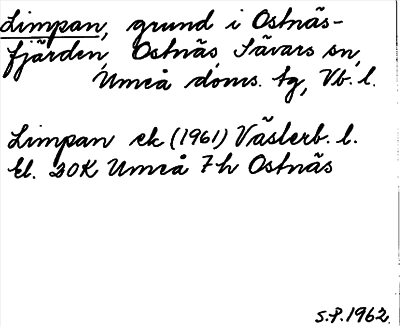 Limpan, grund i Ostnäs-
fjärden, Ostnäs, Sävars sn,
Umeå doms. tg, Vb. l.
Limpan ek (1961) Västerb. l.
bl. 20K Umeå 7h Ostnäs
S.P. 1962